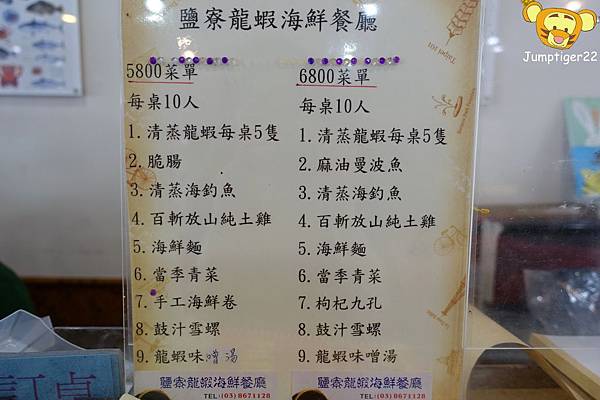 鹽寮龍蝦海鮮餐廳
5800菜單
每桌10人
1. 清蒸龍蝦每桌5隻
2. 脆腸
3. 清蒸海釣魚
4. 百斬放山純土雞
5. 海鮮麵
6. 當季青菜
7. 手工海鮮卷
8. 鼓汁雪螺
9. 龍蝦味噌湯
鹽寮龍蝦海鮮餐廳
TEL:(03) 8671128
6800菜單
每桌10人
1. 清蒸龍蝦每桌5隻
2. 麻油曼波魚
3. 清蒸海釣魚
4. 百斬放山純土雞
5. 海鮮麵
6. 當季青菜
7. 枸杞九孔
8. 鼓汁雪螺
9. 龍蝦味噌湯
鹽寮龍蝦海鮮餐廳
TEL:(03) 8671128
訂桌
Jumptiger22